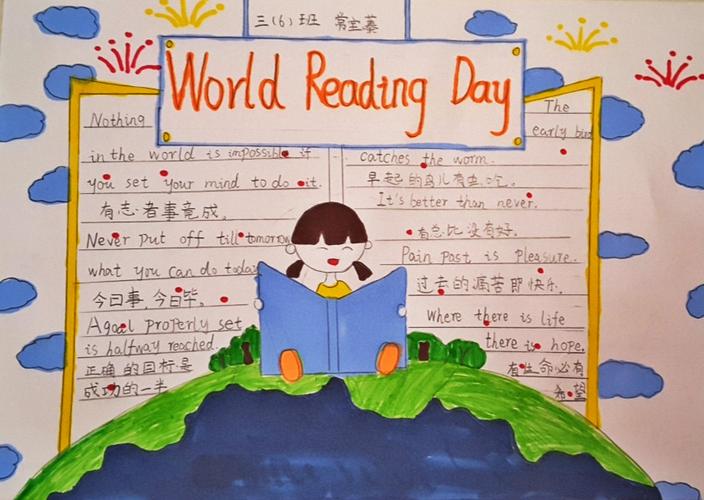 三(6)班 常宝蓁
World Reading Day
Nothing
in the world is impossible if
you set your mind to do it.
有志者事竟成。
Never put off till tomorrow
what you can do today
今日事,今日毕。
A goal properly set
is halfway reached.
正确的目标是
成功的一半
The
early bird
catches the worm.
早起的鸟儿有虫吃。
It's better than never.
有总比没有好。
Pain past is pleasure.
过去的痛苦即快乐.
Where there is life
there is hope.
有生命必有
希望